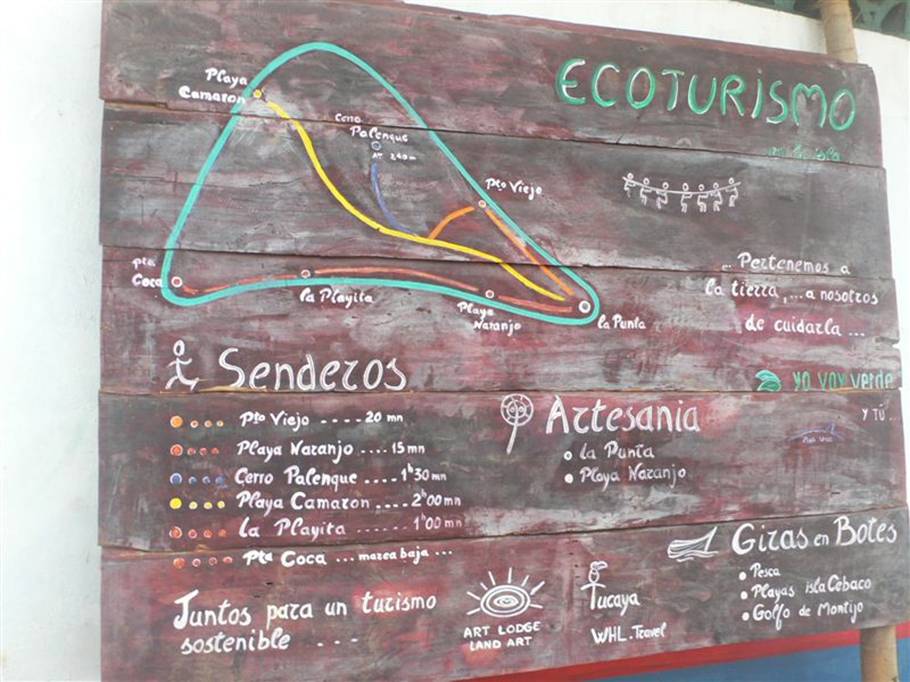 ECOTURISMO
en la isla
Playa
Camaron
Cerro
Palenque
Pto Viejo
Pta
Coca
la Playita
Playa
Naranjo
la Punta
.. Pertenemos a
la tierra,...a nosotros
de cuidarla ...
yo voy verde
Y TÚ ...
Senderos
Pto Viejo .... 20 mn
Playa Naranjo .... 15 mn
Cerro Palenque .... 1h30 mn
Playa Camaron .... 2h00 mn
La Playita ...... 1h00 mn
Pta Coca ... marea baja ...
Artesania
la Punta
Playa Naranjo
Giras en Botes
Pesca
Playas isla Cebaco
Golfo de Montijo
Juntos para un turismo
sostenible ...
ART LODGE
LAND ART
Tucaya
WHL.Travel